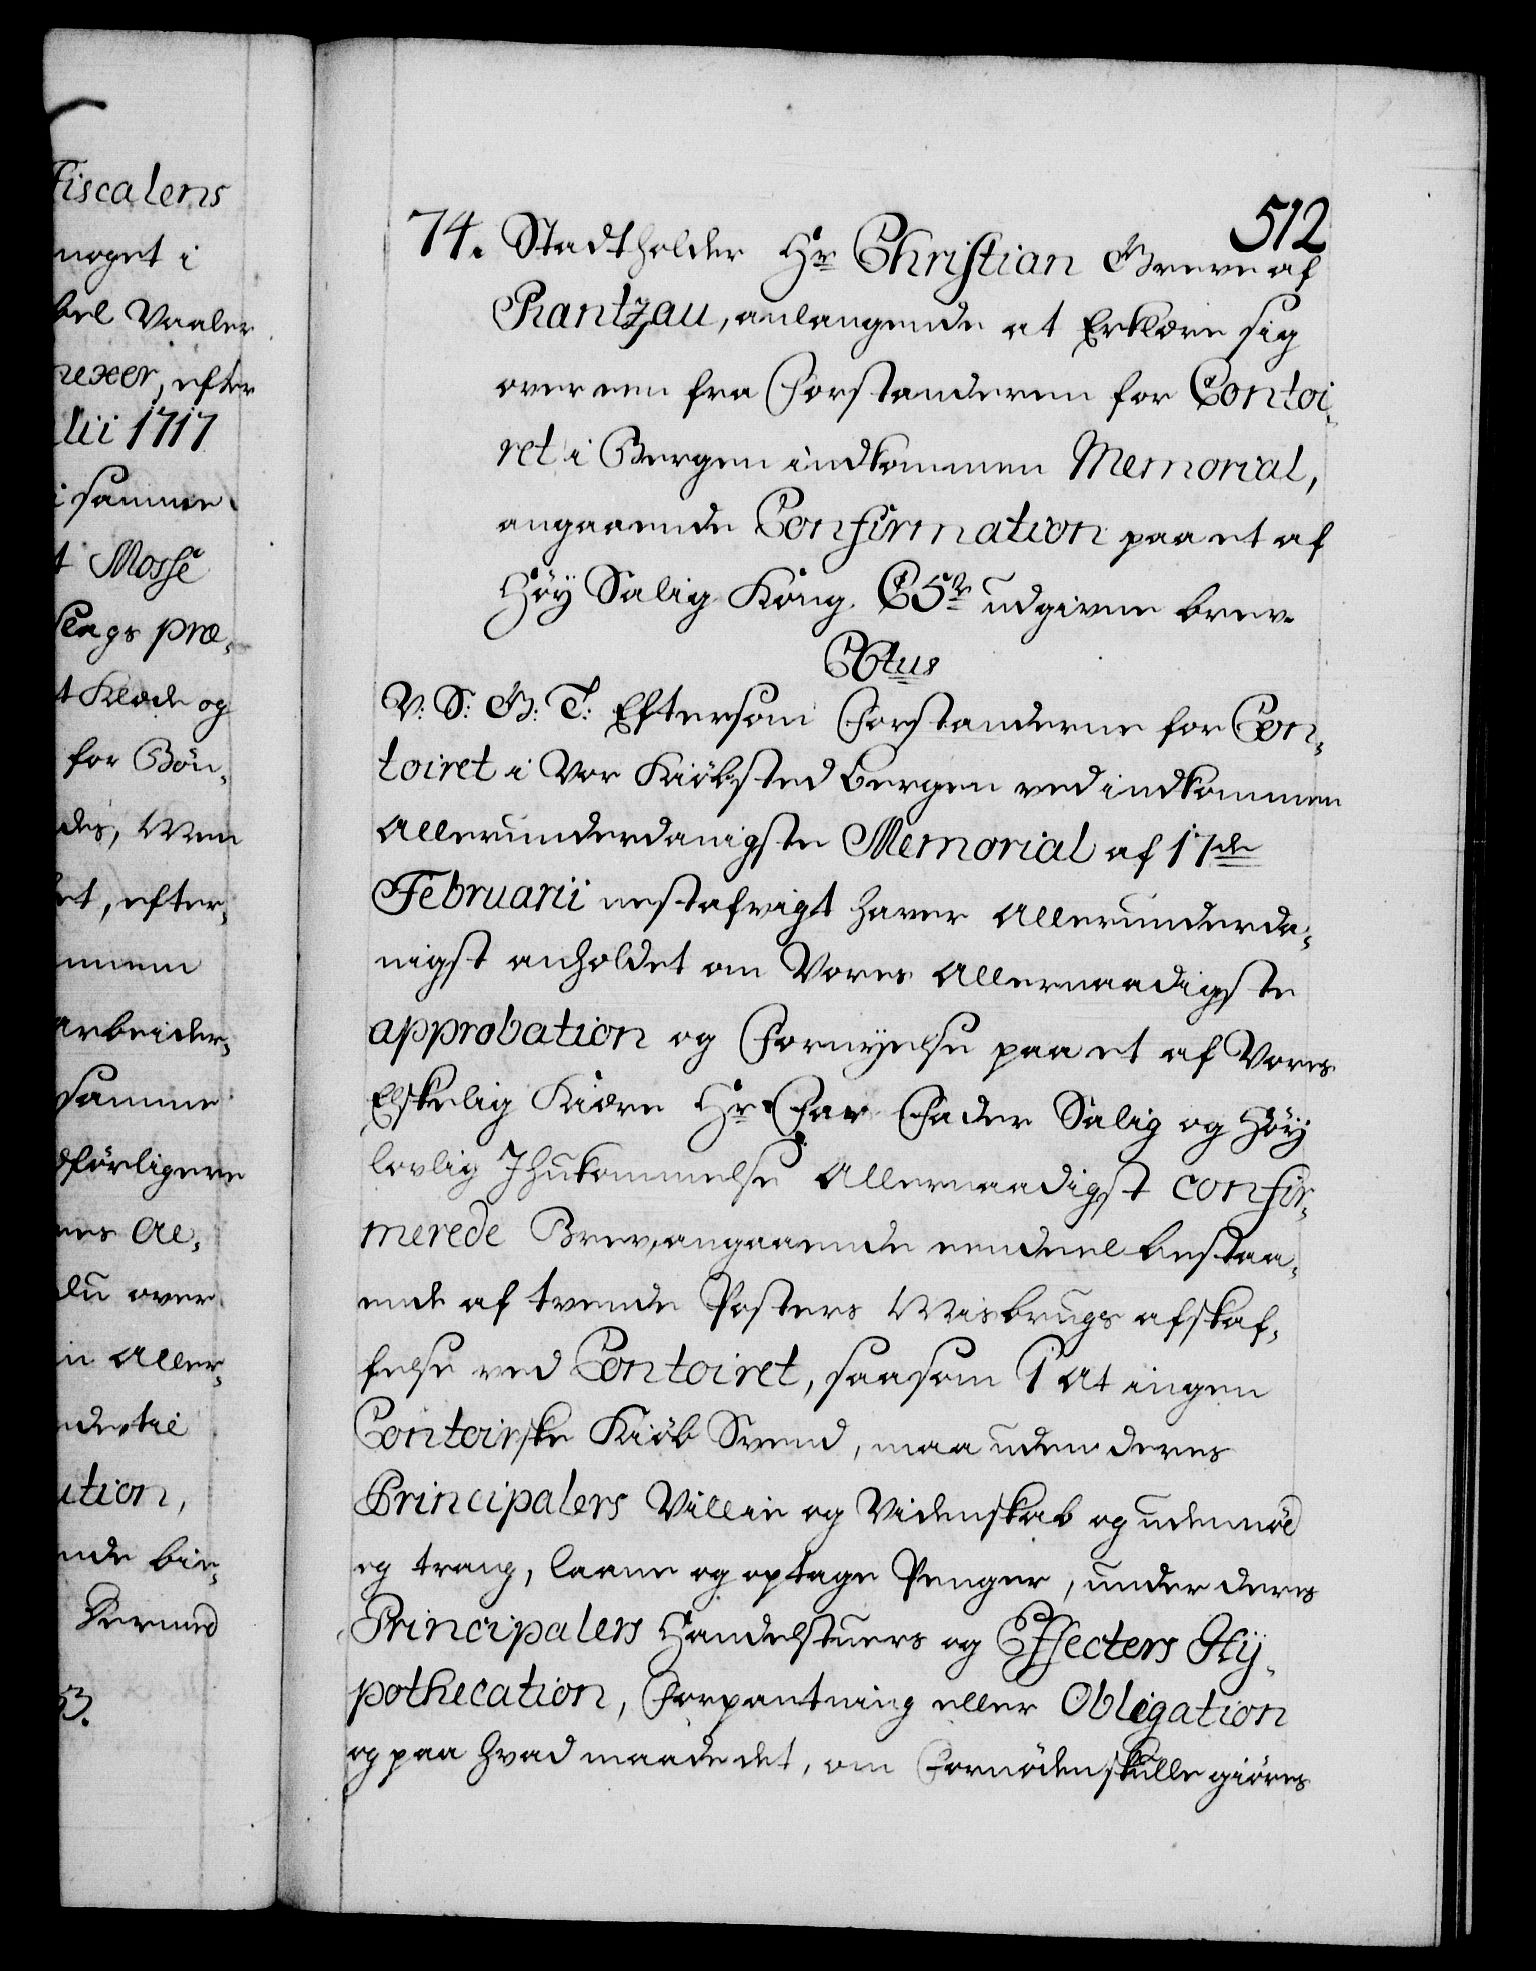 Fiscalens
noget i
Vaaler
nexer, efter
lii 1717
i samme
t Mosse
Slags præ-
t Klæde og
for Bön-
des, Men
et, efter-
nnem
arbeider-
samme
dförligere
nes Al-
du over
in Aller-
ndertil
ution,
nde bir-
Dermed
53.
512
74. Stadtholder Hr Christian Greve af
Rantzau, anlangende at Erklære sig
over een fra Forstanderen for Contoi-
ret i Bergen indkommen Memorial,
angaaende Confirmation paa et af
Höy Salig Kong. C5te udgiven brev.
C6tus
V: S: G: T: Eftersom Forstanderne for Con-
toiret i Vor Kiöbsted Bergen ved indkommen
Allerunderdanigste Memorial af 17de
Februarii nestafvigt haver Allerunderda-
nigst anholdet om Vores Allernaadigste
approbation og Fornyelse paa et af Vores
Elskelig Kiære Hr Far Fader Salig og Höy
lovlig Ihukommelse Allernaadigst confir-
merede Brev, angaaende eendeel bestaa-
ende af tvende Posters Misbrugs afskaf-
felse ved Contoiret, saasom 1 At ingen
Contoirske Kiöb Svend, maa uden deres
Principalers Villie og Videnskab og uden nöd
og trang, laane og optage Penger, under deres
Principalers Handelstuers og Effecters Hy-
pothecation, Forpantning eller Obligation
og paa hvad maade det, om Fornöden skulle giöres